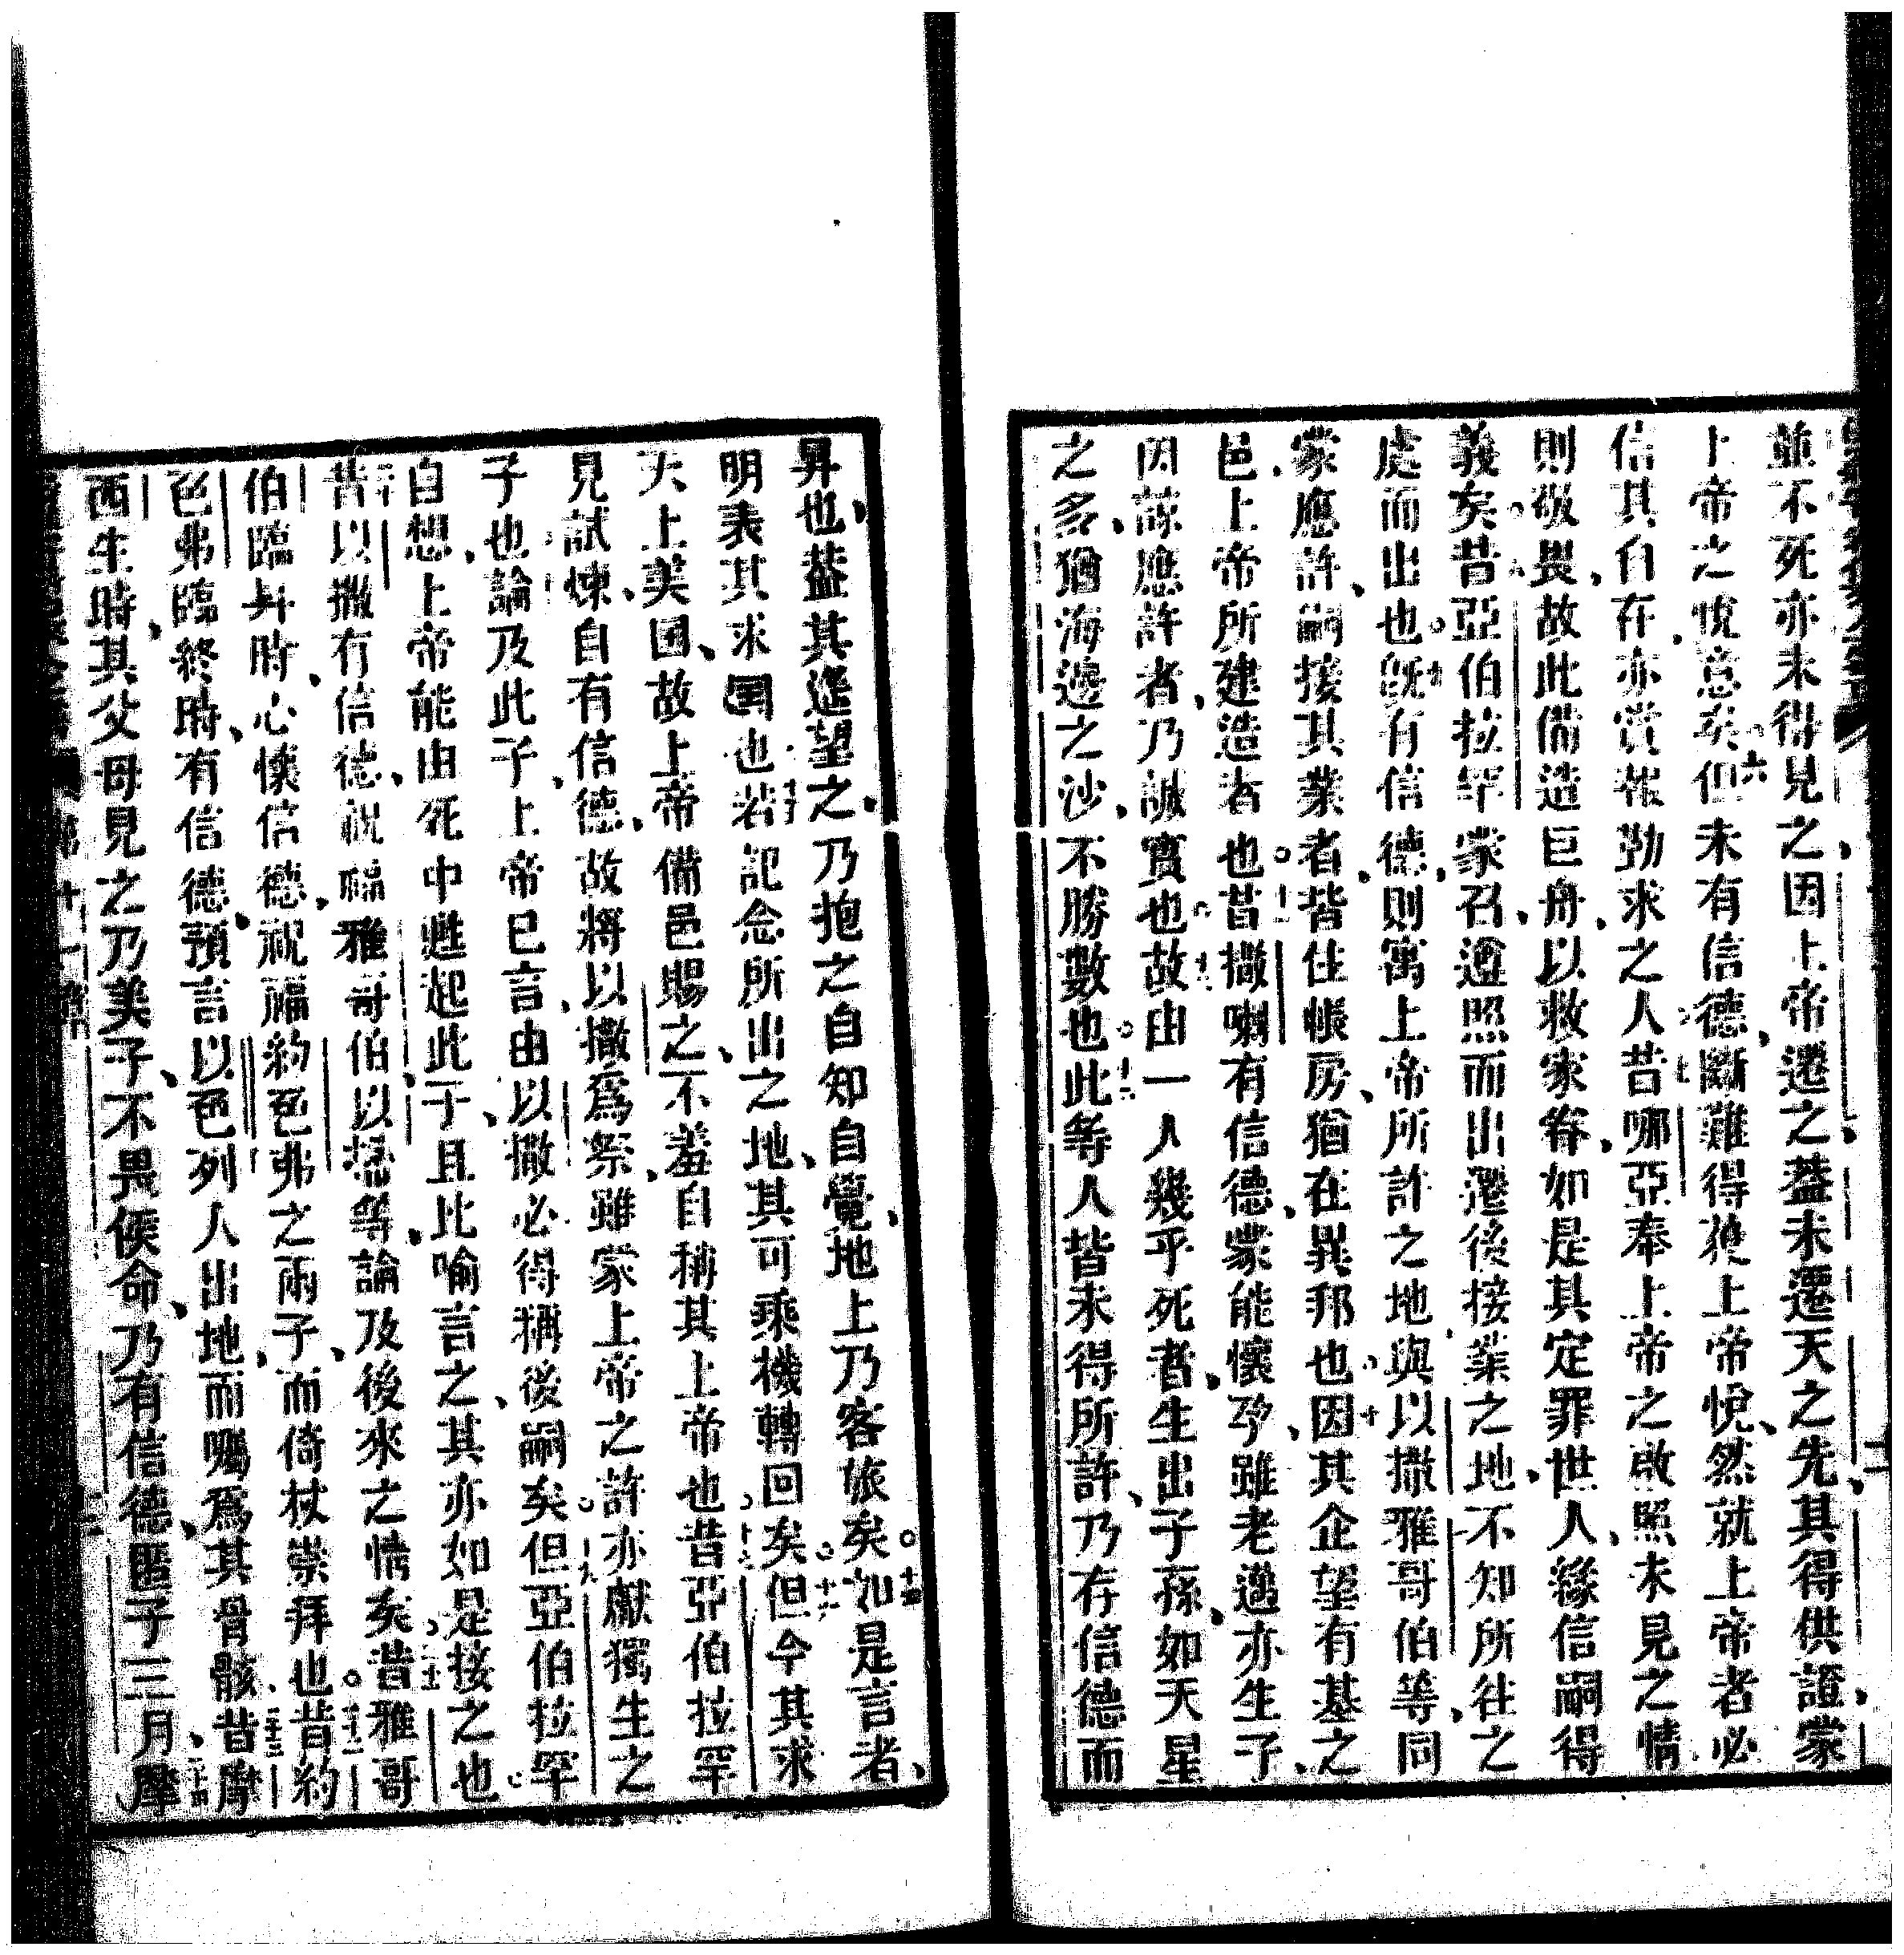 並不死亦未得見之、因上帝遷之、蓋未遷天之先、其得供證、蒙
上帝之悅意矣。六但未有信德、斷難得獲上帝悅、然就上帝者必
信其自在、亦賞報勤求之人。七昔哪亞奉上帝之啟照未見之情、
則敬畏、故此備造巨舟、以救家眷、如是其定罪世人、緣信嗣得
義矣。昔亞伯拉罕蒙召、遵照而出遷後接業之地、不知所往之
處而出也。九既有信德、則寓上帝所許之地、與以撒雅哥伯等、同
蒙應許、嗣接其業者、皆住帳房、猶在異邦也。十因其企望有基之
邑、上帝所建造者也。十一昔撒喇有信德、蒙能懷孕、雖老邁亦生子、
因諒應許者、乃誠實也。十二故由一人幾乎死者、生出子孫、如天星
之多、猶海邊之沙、不勝數也。十三此等人皆未得所許、乃存信德而
昇也、蓋其遙望之、乃抱之、自知自覺、地上乃客旅矣。十四如是言者、
明表其求囯也。十五若記念所出之地、其可乘機轉回矣。十六但今其求
天上美囯、故上帝備邑賜之、不羞自稱其上帝也。十七昔亞伯拉罕
見試煉、自有信德、故將以撒為祭、雖蒙上帝之許、亦獻獨生之
子也。論及此子、上帝已言、由以撒必得稱後嗣矣。十九但亞伯拉罕
自想、上帝能由死中甦起此子、且比喻言之、其亦如是接之也。
二十昔以撒有信德、祝福雅哥伯、以掃等、論及後來之情矣。二十一昔雅哥
伯臨昇時、心懷信德、祝福約色弗之兩子、而倚杖崇拜也。二十二昔約
色弗臨終時、有信德、預言以色列人出地、而囑為其骨骸。二十三昔摩
西生時、其父母見之乃美子、不畏侯命、乃有信德、匿子三月、二十四摩